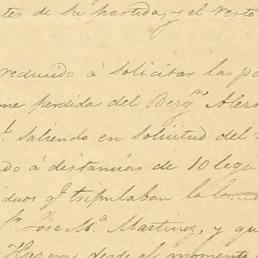 tes de su partida, y el resto
reducido á solicitar las pe
me perdida del Bergn Aler
saliendo en solicitud del
do á distancias de 10 legu
duos qe tripulaban la
Jose Ma Martinez, y qu
desde el momento